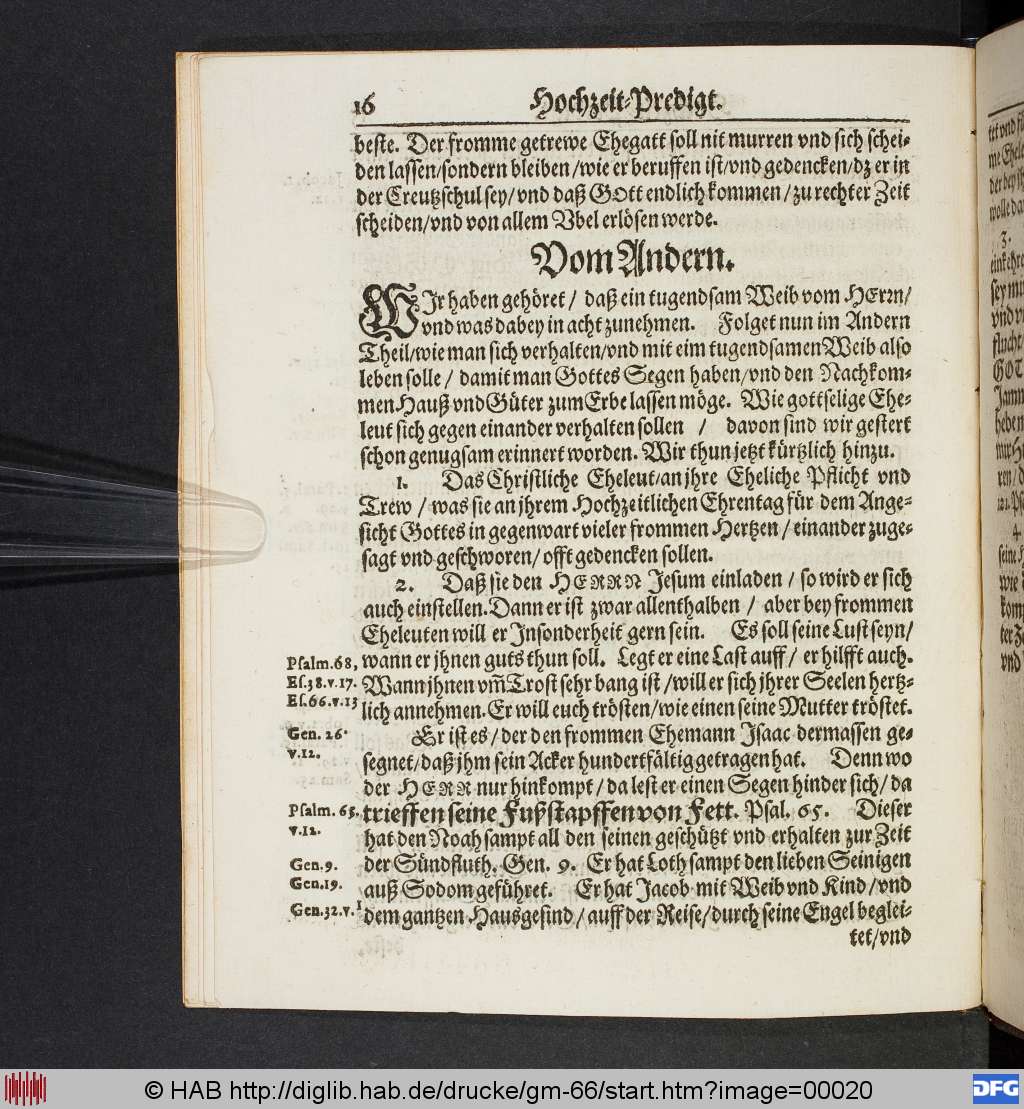 16 Hochzeit-Predigt.
beste. Der fromme getrewe Ehegatt soll nit murren vnd sich schei-
den lassen/sondern bleiben/wie er beruffen ist/vnd gedencken/dz er in
der Creutzschul sey/vnd daß GOtt endlich kommen/zu rechter Zeit
scheiden/vnd von allem Vbel erlösen werde.
Vom Andern.
WIr haben gehöret/ daß ein tugendsam Weib vom HErrn/
vnd was dabey in acht zunehmen. Folget nun im Andern
Theil/wie man sich verhalten/vnd mit eim tugendsamen Weib also
leben solle/ damit man Gottes Segen haben/vnd den Nachkom-
men Hauß vnd Güter zum Erbe lassen möge. Wie gottselige Ehe-
leut sich gegen einander verhalten sollen / davon sind wir gestert
schon genugsam erinnert worden. Wir thun jetzt kürtzlich hinzu.
1. Das Christliche Eheleut/an jhre Eheliche Pflicht vnd
Trew / was sie an jhrem Hochzeitlichen Ehrentag für dem Ange-
sicht Gottes in gegenwart vieler frommen Hertzen/ einander zuge-
sagt vnd geschworen/ offt gedencken sollen.
2. Daß sie den HERRN Jesum einladen / so wird er sich
auch einstellen. Dann er ist zwar allenthalben / aber bey frommen
Eheleuten will er Insonderheit gern sein. Es soll seine Lust seyn/
Psalm.68, wann er jhnen guts thun soll. Legt er eine Last auff/ er hilfft auch.
Es.38.v.17. Wann jhnen vm̃ Trost sehr bang ist/will er sich jhrer Seelen hertz-
Es.66.v.13 lich annehmen. Er will euch trösten/wie einen seine Mutter tröstet.
Gen. 26. Er ist es/ der den frommen Ehemann Isaac dermassen ge-
v.12. segnet/daß jhm sein Acker hundertfältig getragen hat. Denn wo
der HERR nur hinkompt/ da lest er einen Segen hinder sich/ da
Psalm. 65. trieffen seine Fußstapffen von Fett. Psal. 65. Dieser
v.12. hat den Noah sampt all den seinen geschützt vnd erhalten zur Zeit
Gen.9. der Sündfluth. Gen. 9. Er hat Loth sampt den lieben Seinigen
Gen.19. auß Sodom geführet. Er hat Jacob mit Weib vnd Kind/vnd
Gen.32.v.1 dem gantzen Hausgesind/ auff der Reise/durch seine Engel beglei-
tet/vnd
© HAB http://diglib.hab.de/drucke/gm-66/start.htm?image=00020
DFG